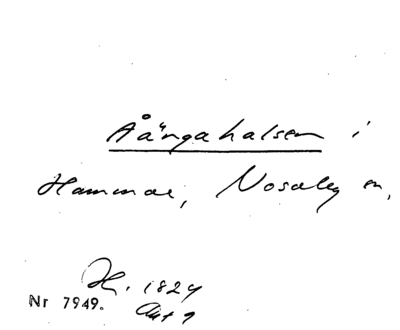 Åängahalsen i
Hammar, Nosaby sn,
H. 1824
Nr 7949. Akt 9